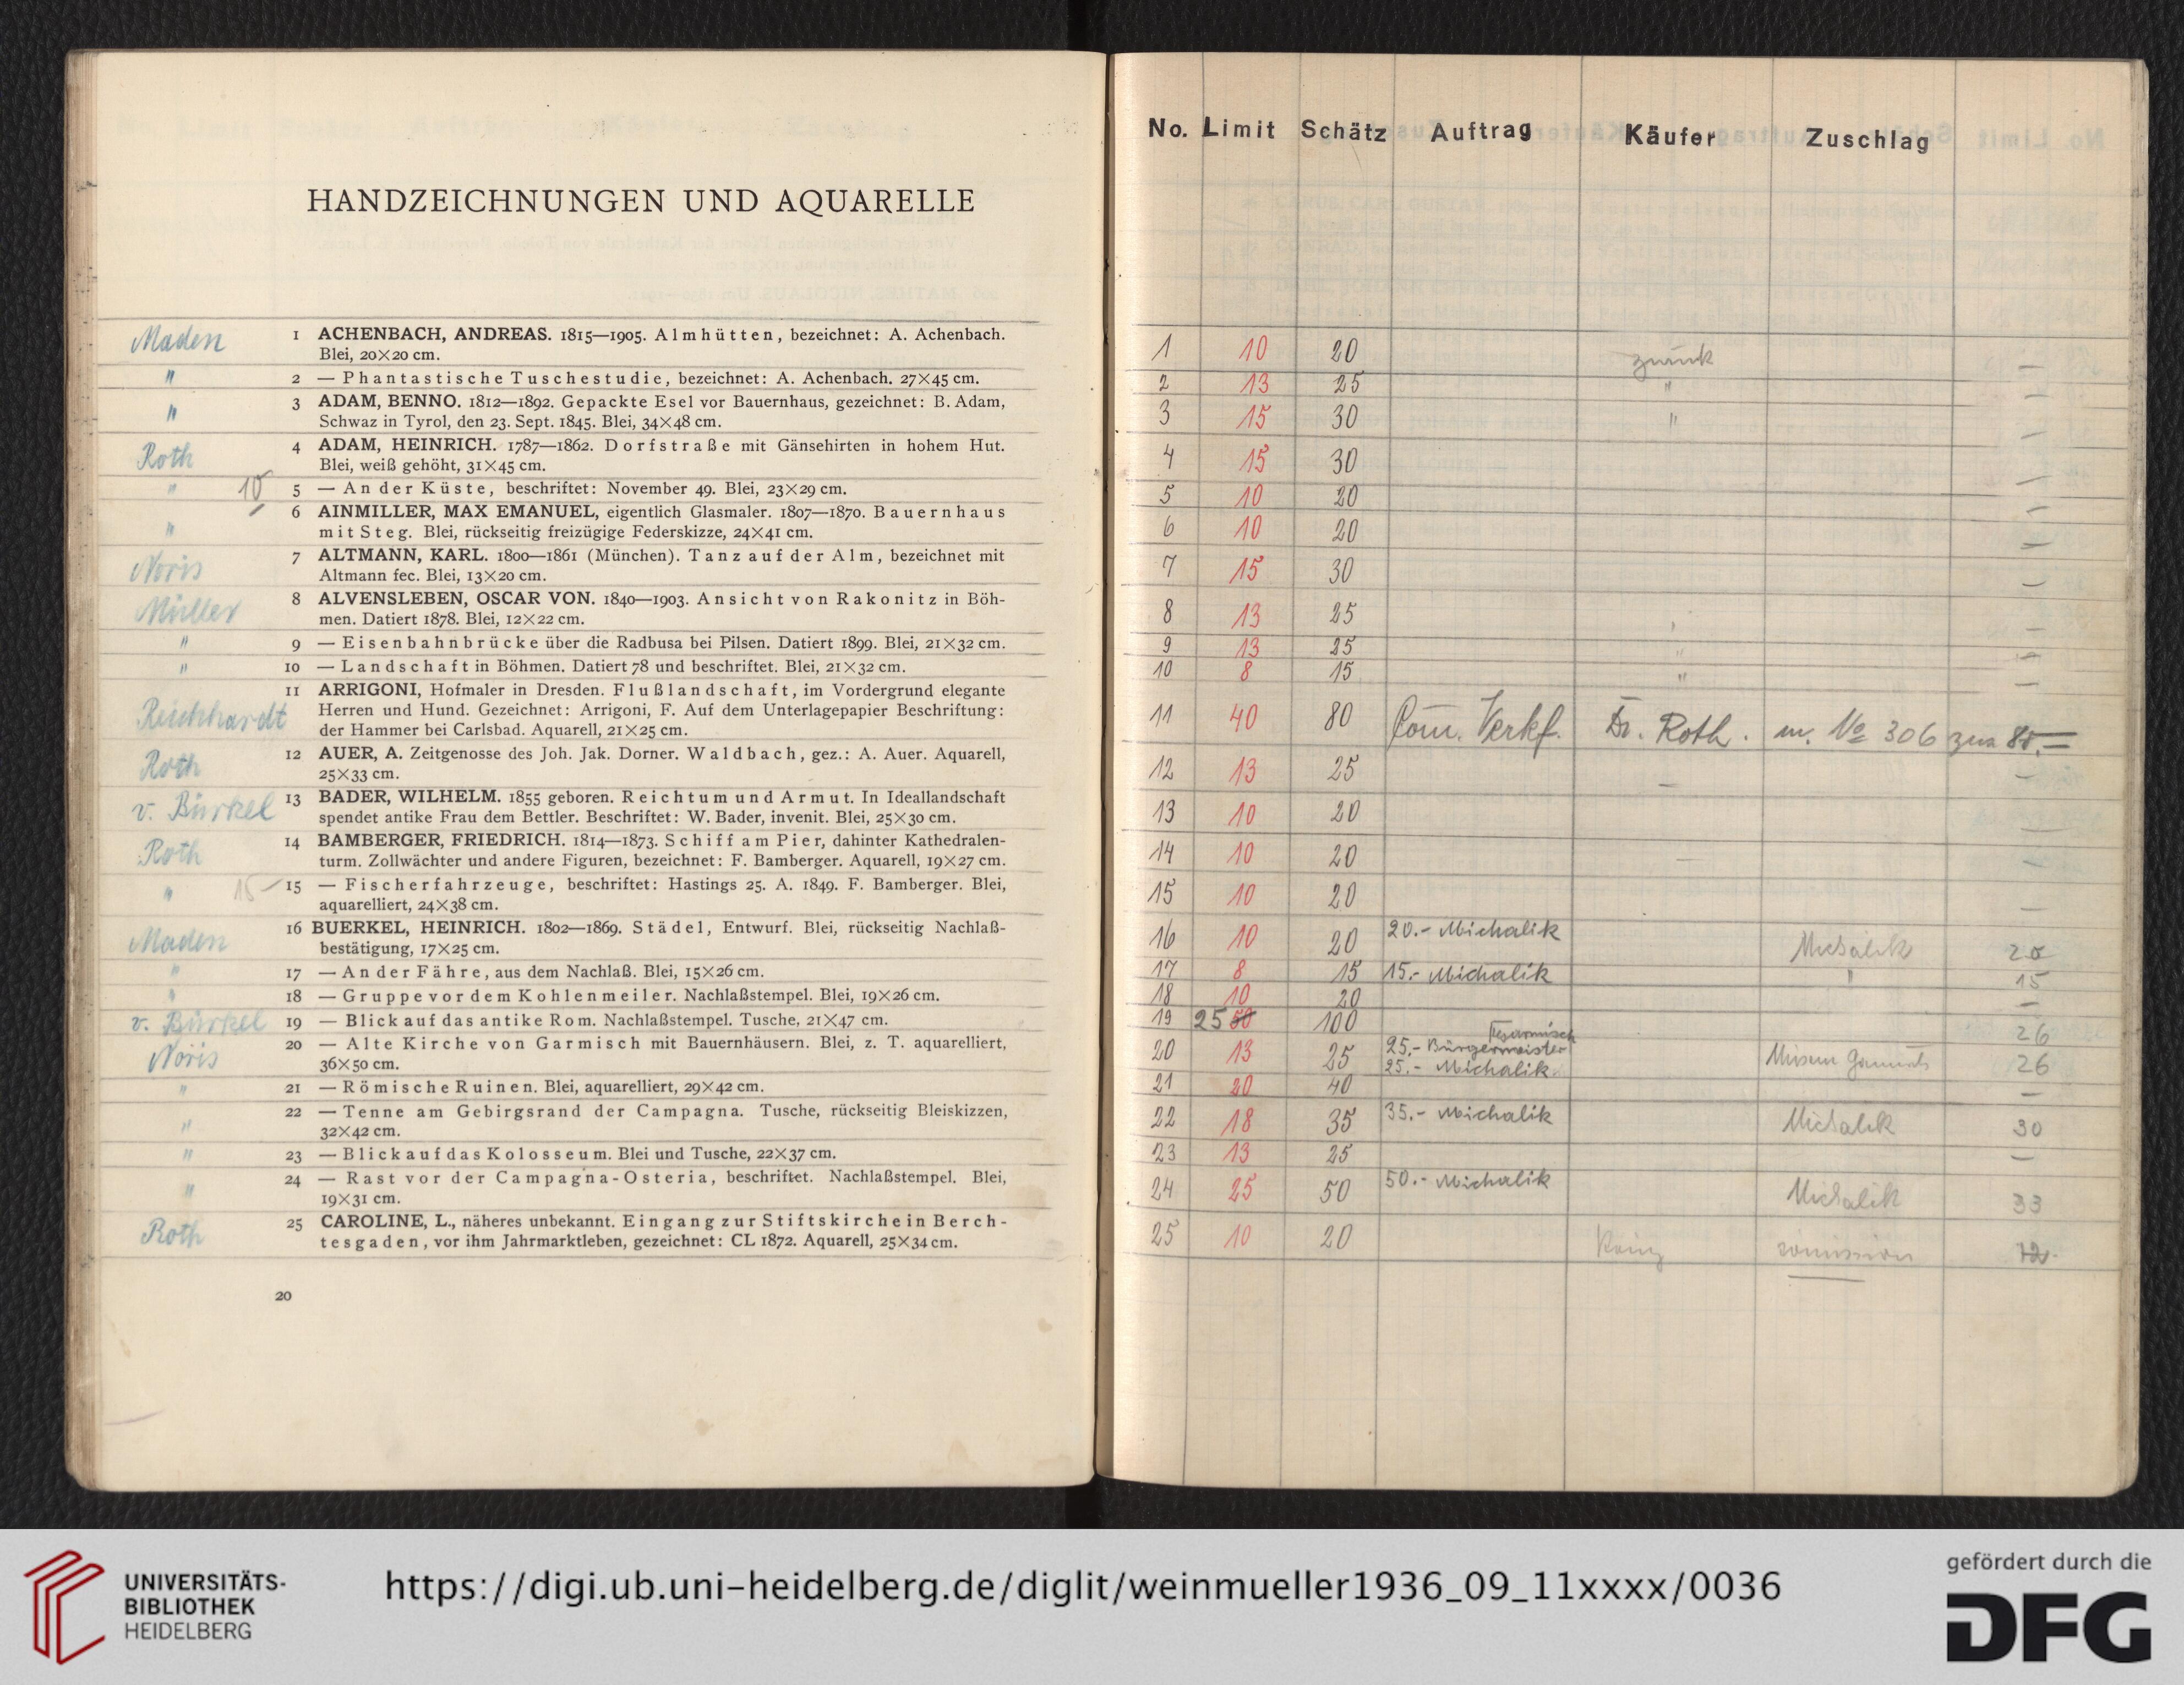 HANDZEICHNUNGEN UND AQUARELLE
Maden
1 ACHENBACH, ANDREAS. 1815—1905. Almhütten, bezeichnet: A. Achenbach.
Blei, 20×20 cm.
" 2 — Phantastische Tuschestudie, bezeichnet: A. Achenbach. 27×45 cm.
" 3 ADAM, BENNO. 1812—1892. Gepackte Esel vor Bauernhaus, gezeichnet: B. Adam,
Schwaz in Tyrol, den 23. Sept. 1845. Blei, 34×48 cm.
Roth 4 ADAM, HEINRICH. 1787—1862. Dorfstraße mit Gänsehirten in hohem Hut.
Blei, weiß gehöht, 31×45 cm.
" 10 5 — An der Küste, beschriftet: November 49. Blei, 23×29 cm.
" 6 AINMILLER, MAX EMANUEL, eigentlich Glasmaler. 1807—1870. Bauernhaus
mit Steg. Blei, rückseitig freizügige Federskizze, 24×41 cm.
Noris 7 ALTMANN, KARL. 1800—1861 (München). Tanz auf der Alm, bezeichnet mit
Altmann fec. Blei, 13×20 cm.
Müller 8 ALVENSLEBEN, OSCAR VON. 1840—1903. Ansicht von Rakonitz in Böh-
men. Datiert 1878. Blei, 12×22 cm.
" 9 — Eisenbahnbrücke über die Radbusa bei Pilsen. Datiert 1899. Blei, 21×32 cm.
" 10 — Landschaft in Böhmen. Datiert 78 und beschriftet. Blei, 21×32 cm.
11 ARRIGONI, Hofmaler in Dresden. Flußlandschaft, im Vordergrund elegante
Reichhardt Herren und Hund. Gezeichnet: Arrigoni, F. Auf dem Unterlagepapier Beschriftung:
der Hammer bei Carlsbad. Aquarell, 21×25 cm.
Roth 12 AUER, A. Zeitgenosse des Joh. Jak. Dorner. Waldbach, gez.: A. Auer. Aquarell,
25×33 cm.
v. Bürkel 13 BADER, WILHELM. 1855 geboren. Reichtum und Armut. In Ideallandschaft
spendet antike Frau dem Bettler. Beschriftet: W. Bader, invenit. Blei, 25×30 cm.
Roth 14 BAMBERGER, FRIEDRICH. 1814—1873. Schiff am Pier, dahinter Kathedralen-
turm. Zollwächter und andere Figuren, bezeichnet: F. Bamberger. Aquarell, 19×27 cm.
" 15 — 15 — Fischerfahrzeuge, beschriftet: Hastings 25. A. 1849. F. Bamberger. Blei,
aquarelliert, 24×38 cm.
Maden 16 BUERKEL, HEINRICH. 1802—1869. Städel, Entwurf. Blei, rückseitig Nachlaß-
bestätigung, 17×25 cm.
" 17 — An der Fähre, aus dem Nachlaß. Blei, 15×26 cm.
" 18 — Gruppe vor dem Kohlenmeiler. Nachlaßstempel. Blei, 19×26 cm.
v. Bürkel 19 — Blick auf das antike Rom. Nachlaßstempel. Tusche, 21×47 cm.
Noris 20 — Alte Kirche von Garmisch mit Bauernhäusern. Blei, z. T. aquarelliert,
36×50 cm.
" 21 — Römische Ruinen. Blei, aquarelliert, 29×42 cm.
" 22 — Tenne am Gebirgsrand der Campagna. Tusche, rückseitig Bleiskizzen,
32×42 cm.
" 23 — Blick auf das Kolosseum. Blei und Tusche, 22×37 cm.
" 24 — Rast vor der Campagna-Osteria, beschriftet. Nachlaßstempel. Blei,
19×31 cm.
Roth 25 CAROLINE, L., näheres unbekannt. Eingang zur Stiftskirche in Berch-
tesgaden, vor ihm Jahrmarktleben, gezeichnet: CL 1872. Aquarell, 25×34 cm.
20
No. Limit Schätz Auftrag Käufer Zuschlag
1 10 20 zurück —
2 13 25 " —
3 15 30 " —
4 15 30 —
5 10 20 —
6 10 20 —
7 15 30 —
8 13 25 —
9 13 25 " —
10 8 15 " —
11 40 80 Com. Verkf. Dr. Roth. m. No 306 zus 85.—
12 13 25 — —
13 10 20 —
14 10 20 — —
15 10 20 —
16 10 20 20.- Michalik Michalik 20
17 8 15 15.- Michalik " 15
18 10 20 —
19 25 50 100 26
20 13 25 25.- Bürgermeister Garmisch
25.- Michalik. Museum Garmisch 26
21 20 40 —
22 18 35 35.- Michalik Michalik 30
23 13 25 —
24 25 50 50.- Michalik Michalik 33
25 10 20 12.-
UNIVERSITÄTS-
BIBLIOTHEK
HEIDELBERG
https://digi.ub.uni-heidelberg.de/diglit/weinmueller1936_09_11xxxx/0036
gefördert durch die
DFG